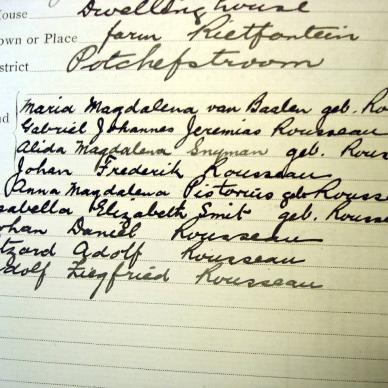 House Dwelling house
own or Place farm Rietfontein
strict Potchefstroom
Maria Magdalena van Baalen geb. Ro
Gabriel Johannes Jeremias Rousseau
Alida Magdalena Snyman geb. Rous
Johan Frederik Rousseau
Anna Magdalena Pistorius geb Rousse
sabella Elizabeth Smit geb. Rousse
ohan Daniel Rousseau
tzard Adolf Rousseau
dolf Ziegfried Rousseau